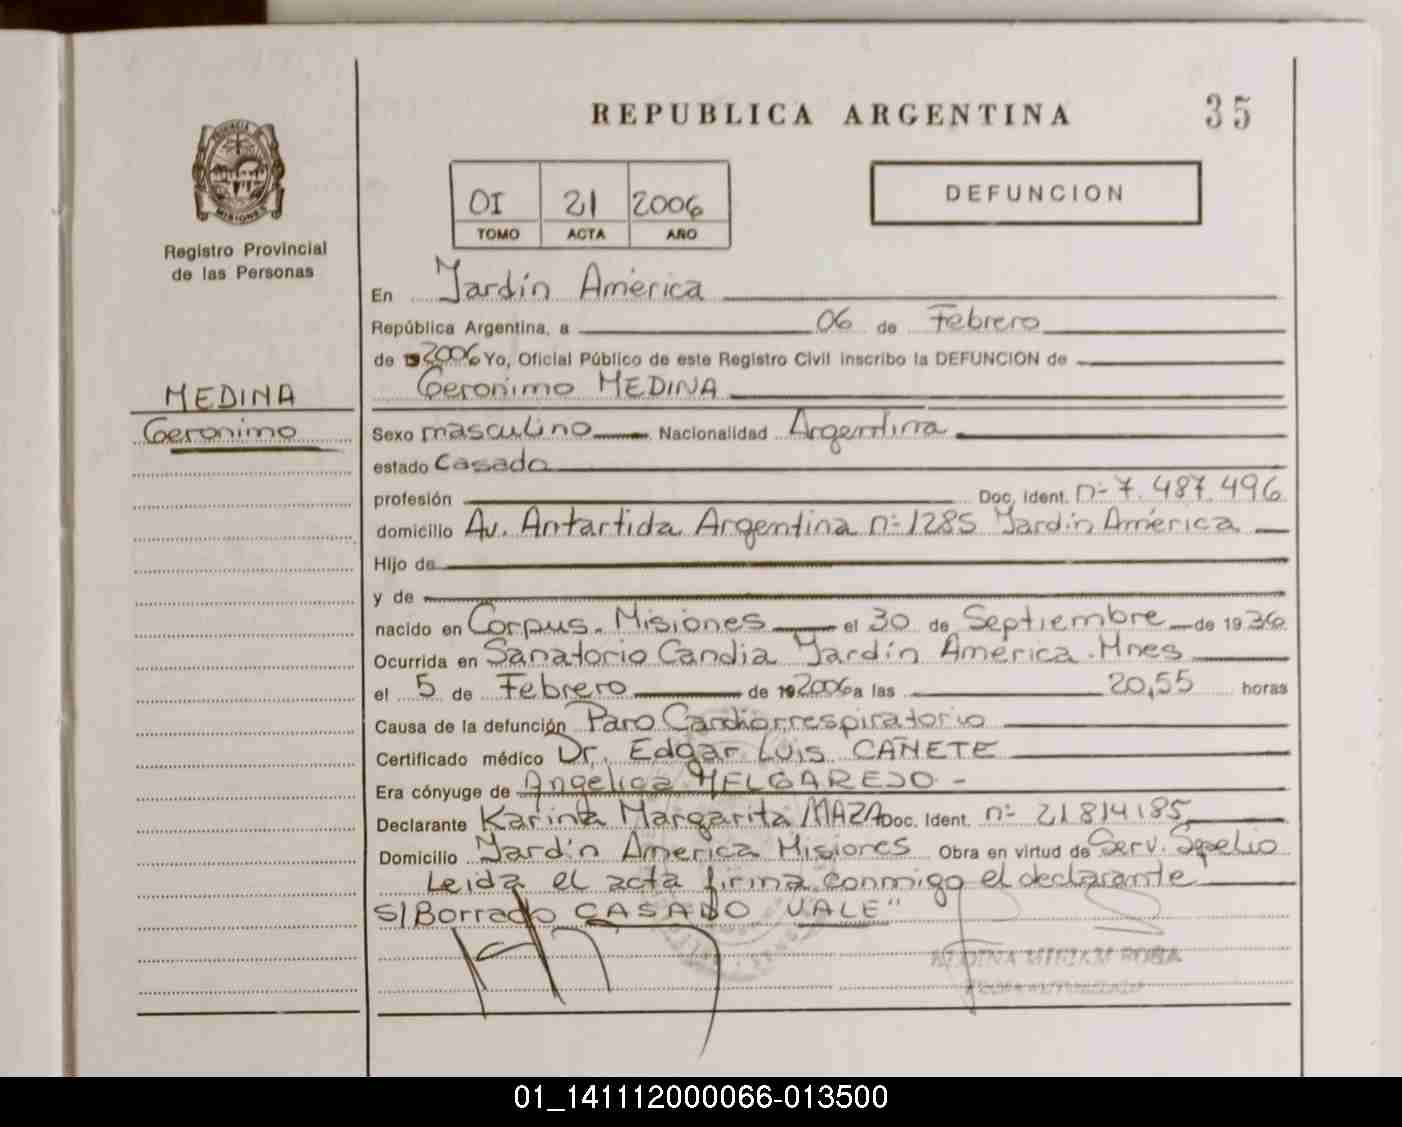 REPUBLICA ARGENTINA
35
PROVINCIA DE MISIONES
Registro Provincial
de las Personas
OI 21 2006
TOMO ACTA AÑO
DEFUNCION
MEDINA
Geronimo
En Jardín América
República Argentina, a 06 de Febrero
de 192006 Yo, Oficial Público de este Registro Civil inscribo la DEFUNCION de
Geronimo MEDINA
Sexo masculino Nacionalidad Argentina
estado Casado
profesión Doc. Ident. nº 7.487.496
domicilio Av. Antartida Argentina nº 1285 Jardín América
Hijo de
y de
nacido en Corpus. Misiones el 30 de Septiembre de 1936
Ocurrida en Sanatorio Candia Jardín América. Mnes
el 5 de Febrero de 192006 a las 20,55 horas
Causa de la defunción Paro Cardiorrespiratorio
Certificado médico Dr. Edgar Luis CAÑETE
Era cónyuge de Angelica MELGAREJO -
Declarante Karina Margarita MAZA Doc. Ident. nº 21814185
Domicilio Jardín America Misiones Obra en virtud de Serv. Sepelio
Leida el acta firma conmigo el declarante
S/Borrado CASADO VALE"
MIRIAM
01_141112000066-013500